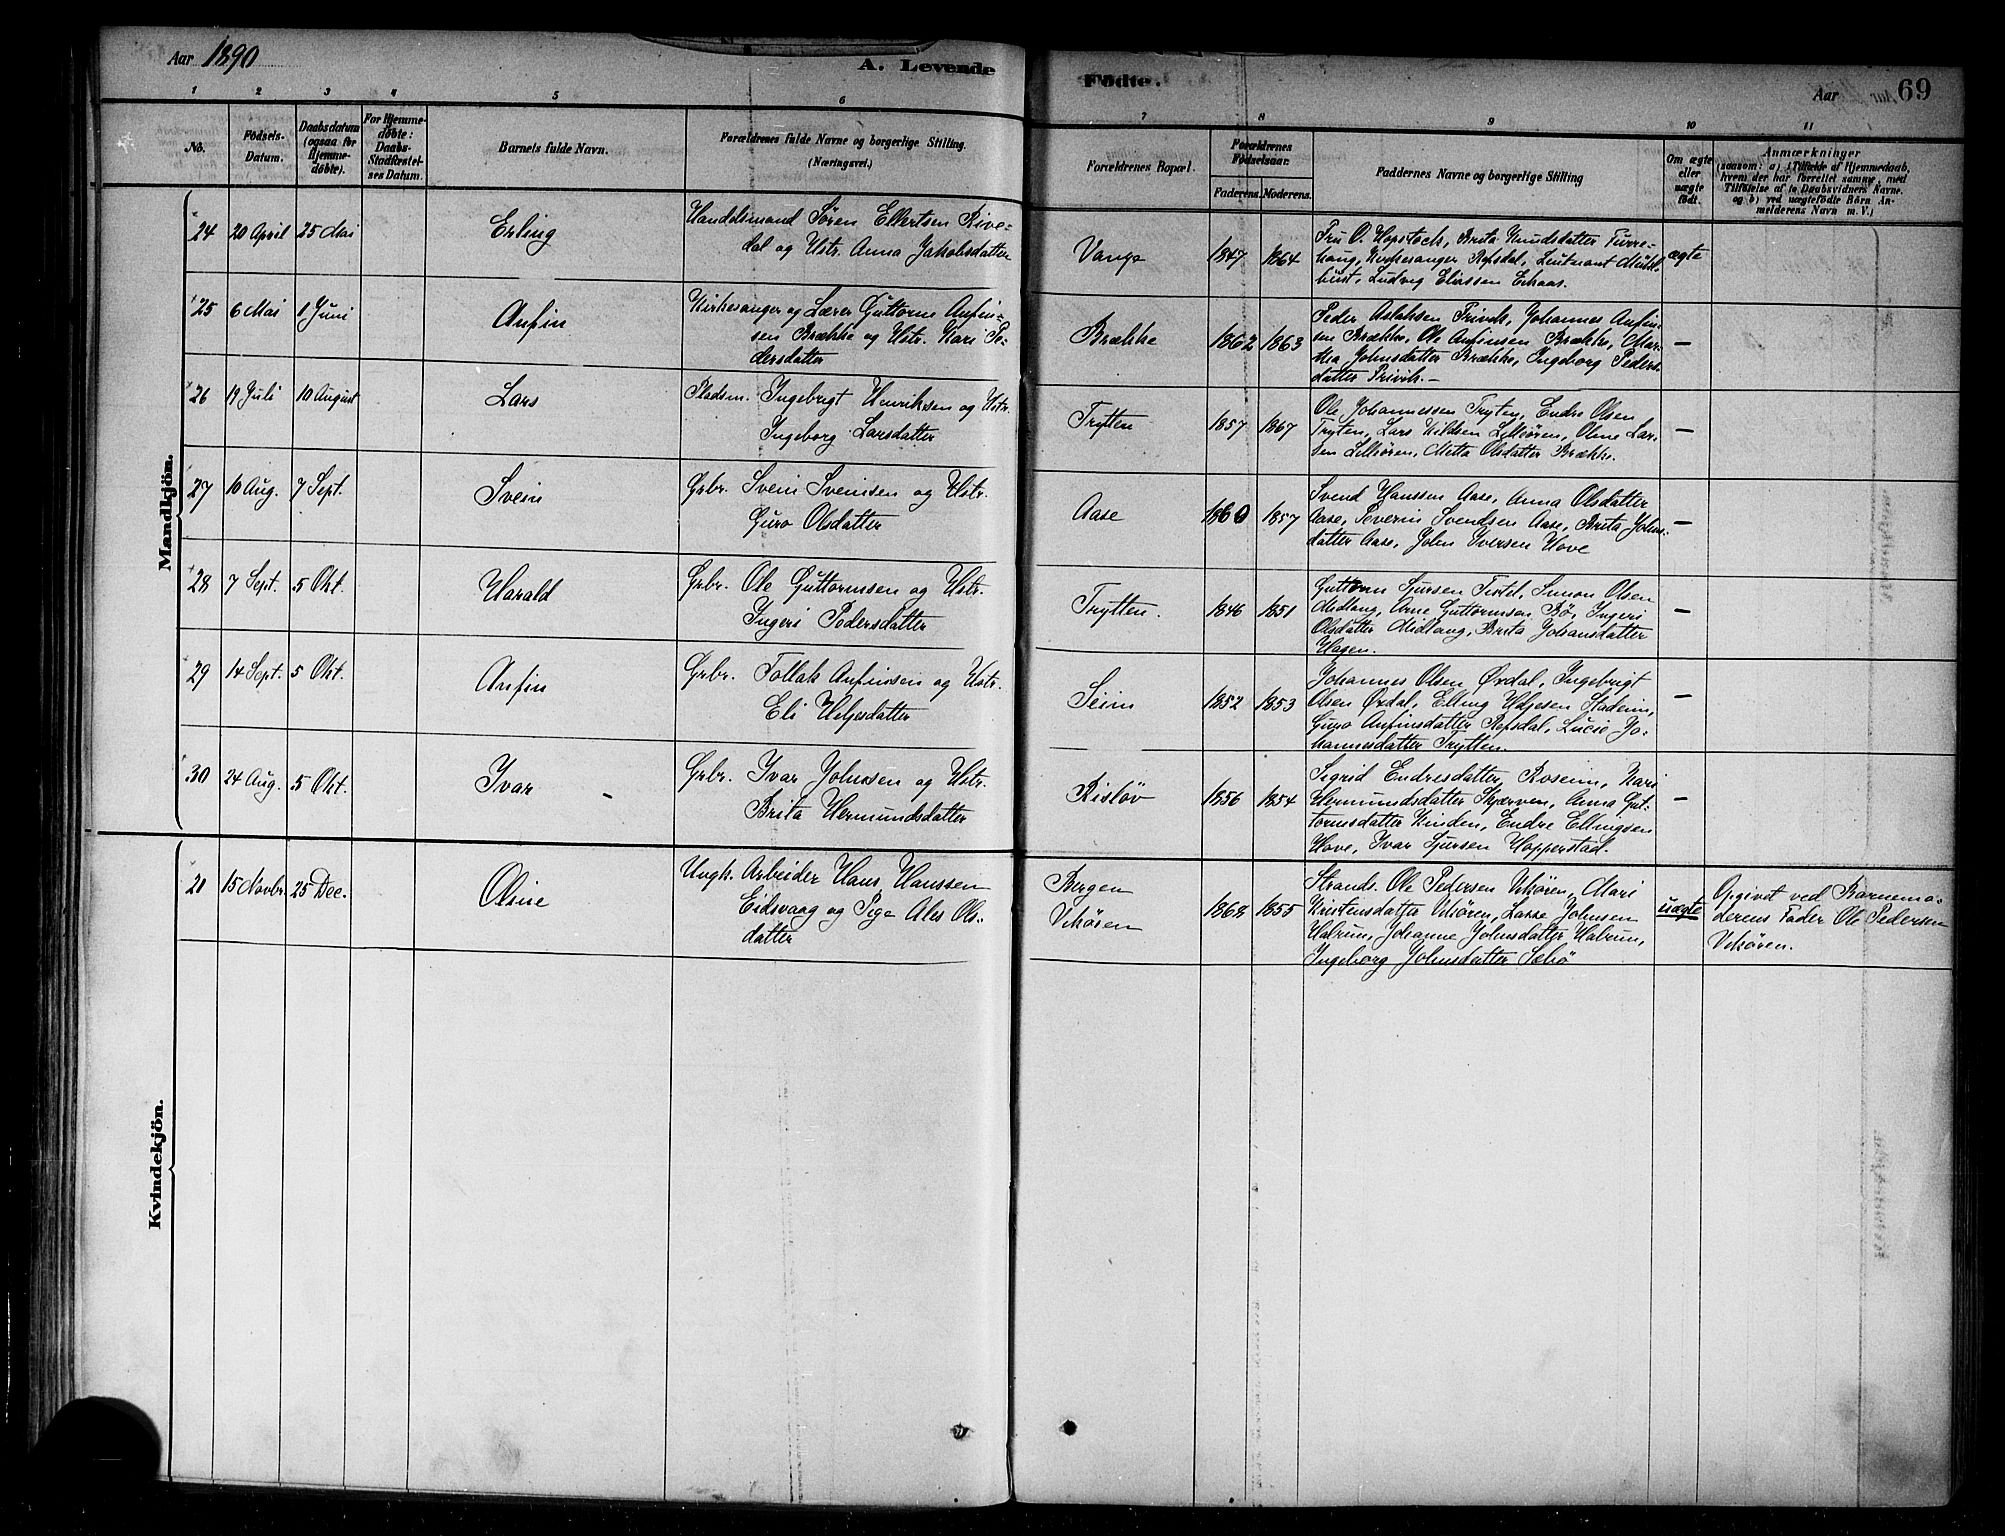 Aar 1890
A. Levende
Fødte.
Aar
69
1 2 3 4 5 6 7 8 9 10 11
No.
Födsels-
Datum.
Daabsdatum
(ogsaa for
Hjemme-
döbte).
For Hjemme-
døbte:
Daabs-
Stadfæstel-
ses Datum.
Barnets fulde Navn.
Forældrenes fulde Navne og borgerlige Stilling.
(Næringsvei.)
Forældrenes Bopæl.
Forældrenes
Födselsaar.
Faderens. Moderens.
Faddernes Navne og borgerlige Stilling
Om ægte
eller
uægte
födt.
Anmærkninger
(saasom: a) i Tilfælde af Hjemmedaab,
hvem der har forrettet samme, med
Tilföielse af to Daabsvidners Navne.
og b) ved uægtefödte Börn An-
melderens Navn m. V.)
Mandkjön.
24 20 April 25 Mai Erling
Handelsmand Søren Elkertsen Rive-
dal og Hstr. Anna Jakobsdatter
Vangs 1847 1864
Fru O. Hopstock, Brita Knudsdatter Turve-
haug, Kirkesanger Refsdal, Leutnant
Ludvig Eliassen
ægte
25 6 Mai 1 Juni Anfin
Kirkesanger og Lærer Guttorm Anfin-
sen Brække og Hstr. Kari Pe-
dersdatter
Brække 1862 1863
Peder Aslaksen Trivik, Johannes Anfin-
sen Brække, Ole Anfinsen Brække, Mar-
tha Johnsdatter Brække, Ingeborg Peders-
datter Privik. —
—
26 19 Juli 10 August Lars
Pladsm. Ingebrigt Henriksen og Hstr.
Ingeborg Larsdatter
Trytten 1857 1867
Ole Johannessen Tryten, Endre Olsen
Tryten, Lars Lilleören, Olene Lar-
sen Lilleören, Metta Olsdatter Brække.
—
27 10 Aug. 7 Sept. Svein
Grbr. Svein Sveinsen og Hstr.
Guro Olsdatter
Aase 1860 1857
Svend Hanssen Aase, Anna Olsdatter
Aase, Severin Svendsen Aase, Brita Johns-
datter Aase, John Iversen Hove
—
28 7 Sept. 5 Okt. Harald
Grbr. Ole Guttormsen og Hstr.
Ingeri Pedersdatter
Trytten. 1846 1851
Guttorm Sjursen Tistel, Simon Olsen
Midlang, Arne Guttormsen Bø, Ingeri
Olsdatter Midlang, Brita Johansdatter
Hagen.
—
29 14 Sept. 5 Okt. Anfin
Grbr. Follak Anfinssen og Hstr.
Eli Heljesdatter
Seim 1852 1853
Johannes Olsen Øxdal, Ingebrigt
Olsen Øxdal, Elling Heljesen Stadeim,
Guro Anfinsdatter Refsdal, Lucie Jo-
hannesdatter Trytten.
—
30 24 Aug. 5 Okt. Ivar
Grbr. Ivar Johnsen og Hstr.
Brita Hermundsdatter
Risløv 1856 1854
Sigrid Endresdatter Roseim, Kari
Hermundsdatter Skjærven, Anna Gut-
tormsdatter Kinden, Endre Ellingsen
Hove, Ivar Sjursen Hopperstad.
—
Kvindekjön.
21 15 Novbr. 25 Dec. Olsine
Ungk. Arbeider Hans Hanssen
Eidsvaag og Pige Ales Ols-
datter
Bergen
Vikøren
1868 1855
Strands. Ole Pedersen Vikøren, Mari
Kristensdatter Vikøren, Lasse Johnsen
Halrun, Johanne Johnsdatter Halrun,
Ingeborg Johnsdatter
uægte
Opgivet ved Barnemo-
derens Fader Ole Pedersen
Vikøren.